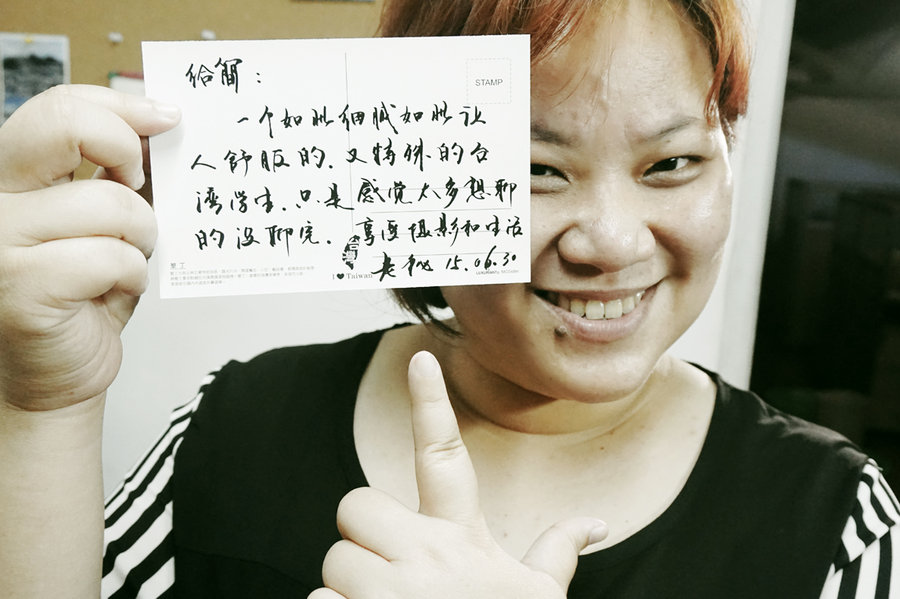 给簡：
STAMP
一个如此细腻如此让
人舒服的.又特殊的台
湾学生.只是感觉太多想聊
的没聊完. 享受摄影和生活
台灣
I ♥ Taiwan
15.06.30
墾丁